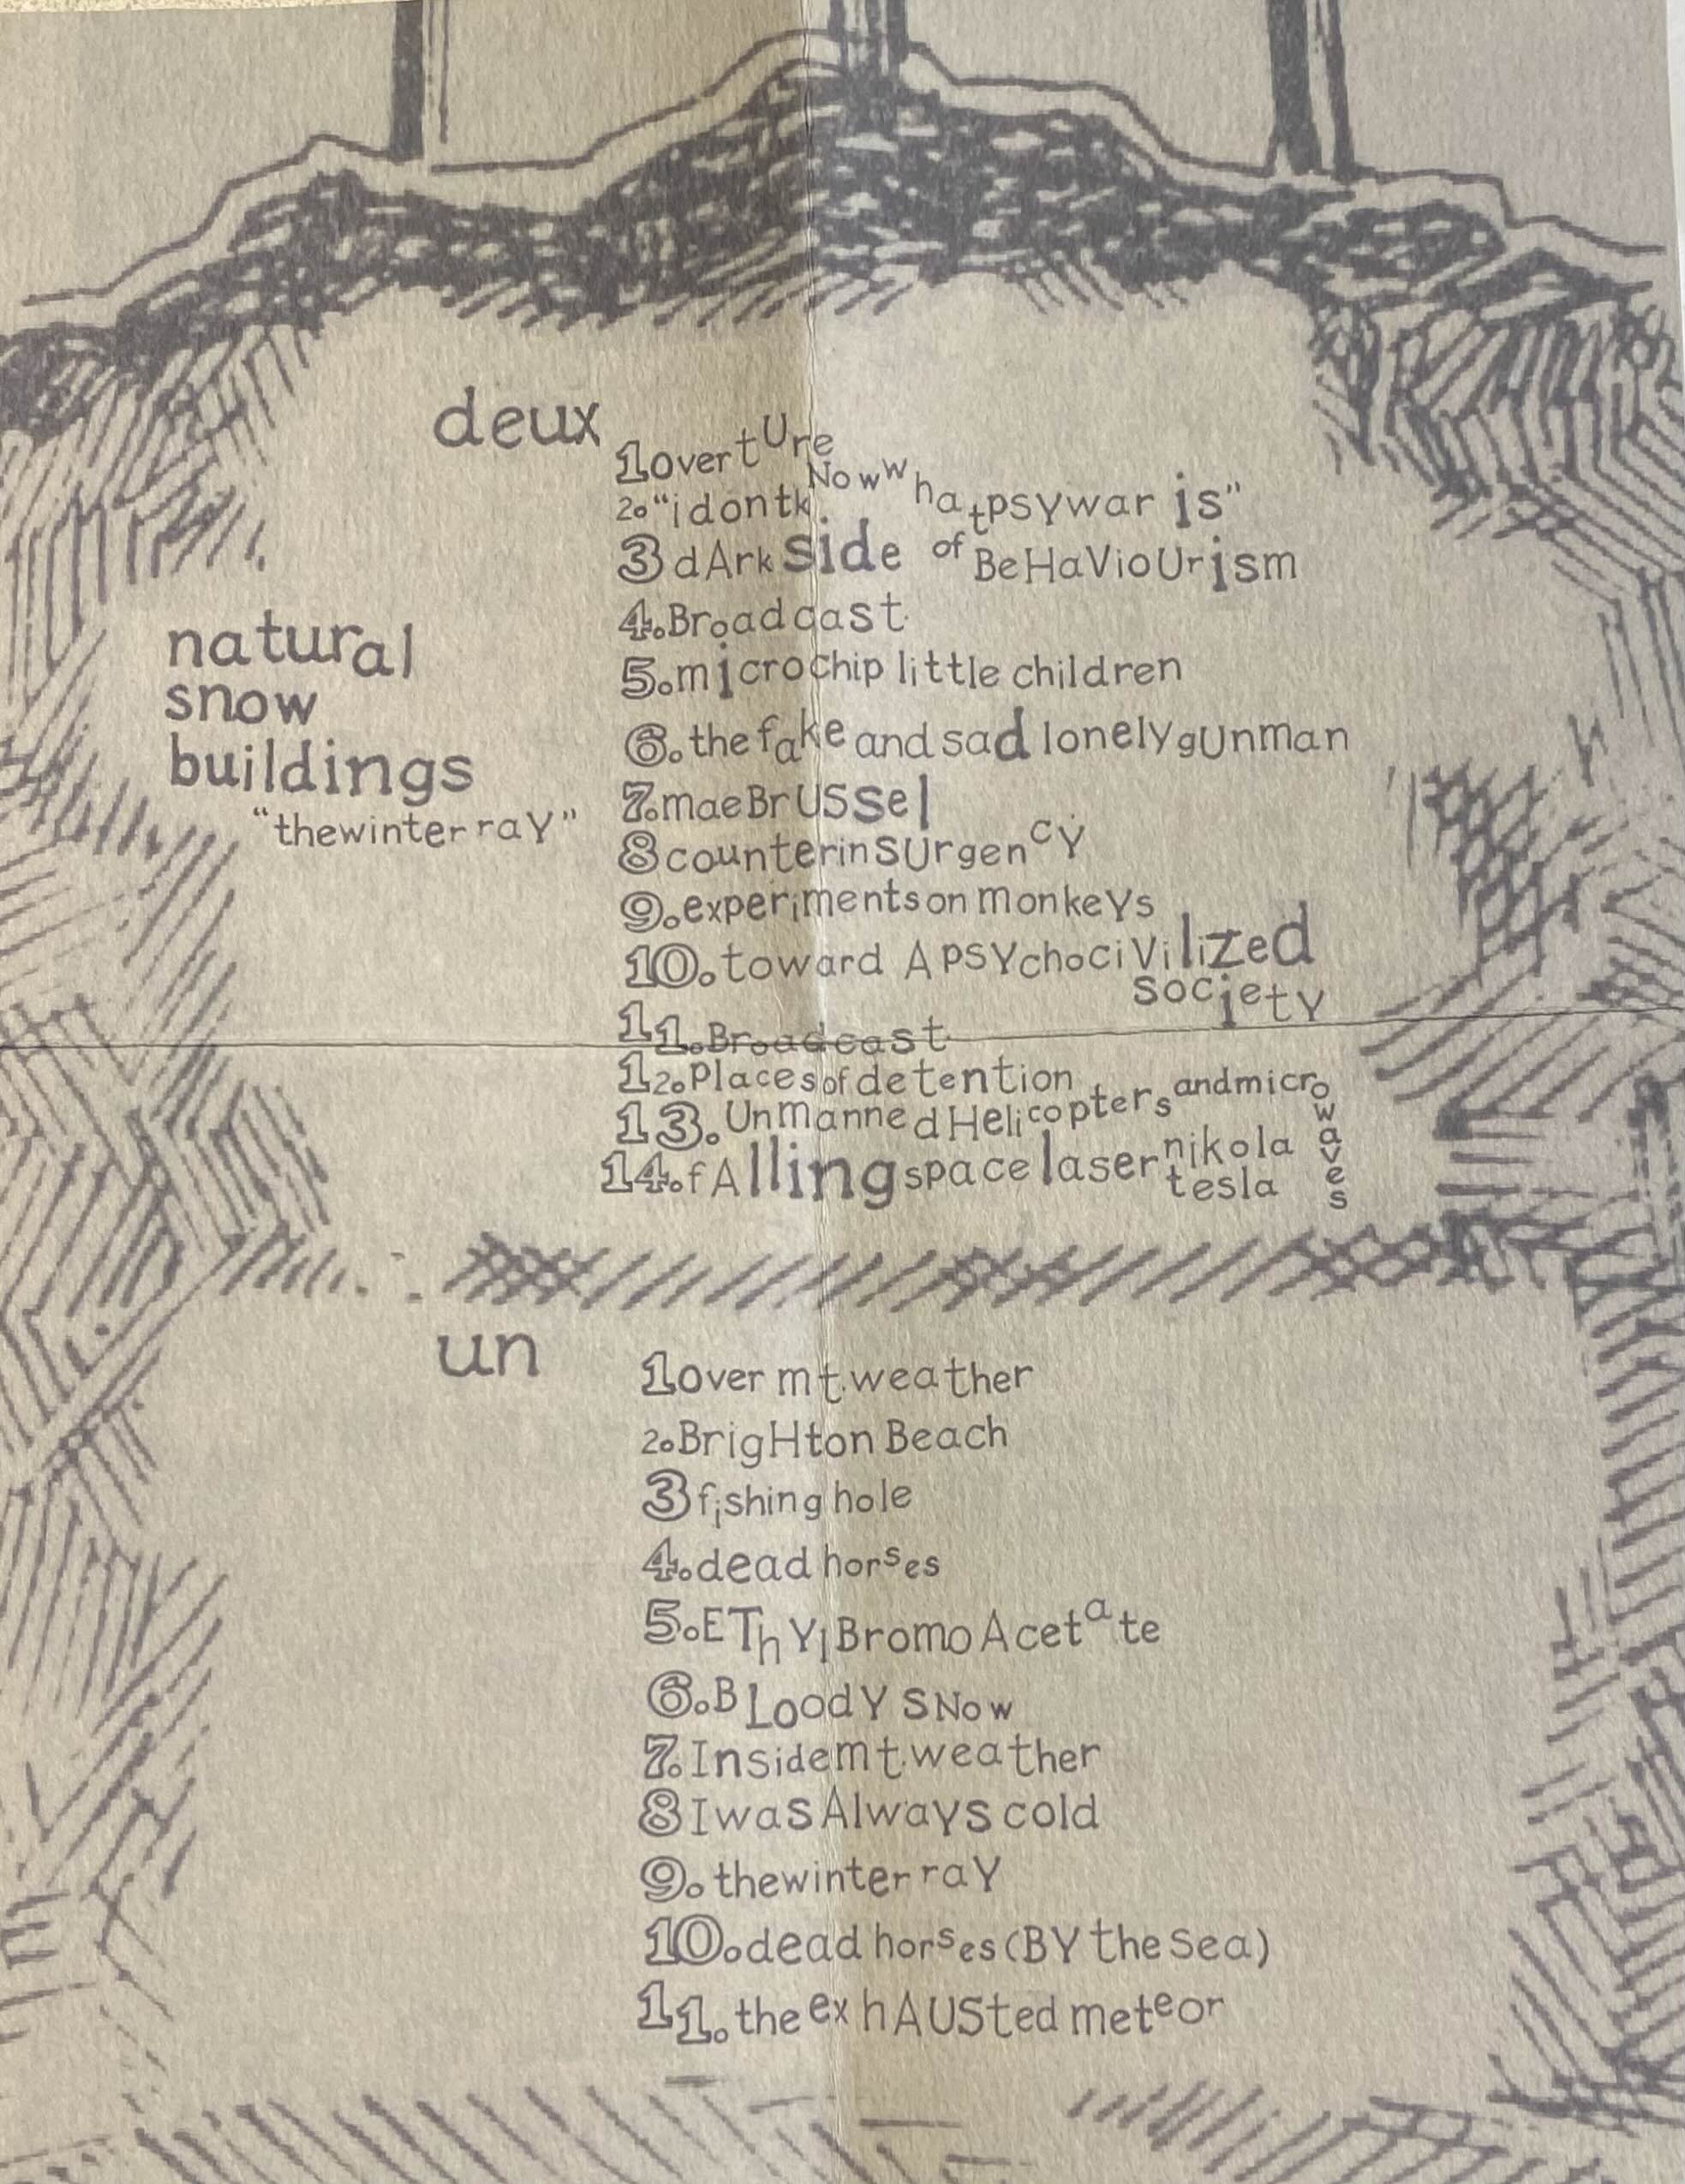 deux
1 overtUre
2. "i dont kNow whatpsywar is"
3 dArk side of BeHaVioUrism
4. Broadcast
5. microchip little children
6. the fake and sad lonely gUnman
7. mae BrUSSel
8 counterinsUrgencY
9. experiments on monkeYs
10. toward A PSYchociVilized
society
11. Broadcast
12. Places of detention
13. UnManned Helicopters and microwaves
14. fAlling space laser nikola
tesla
natural
snow
buildings
"the winter raY"
un
1 over mt. weather
2. BrigHton Beach
3 fishing hole
4. dead horses
5. EThYl Bromo Acetate
6. BLoodY SNow
7. Inside mt. weather
8 I was AlwaYs cold
9. the winter raY
10. dead horses (BY the Sea)
11. the exhAUSted meteor